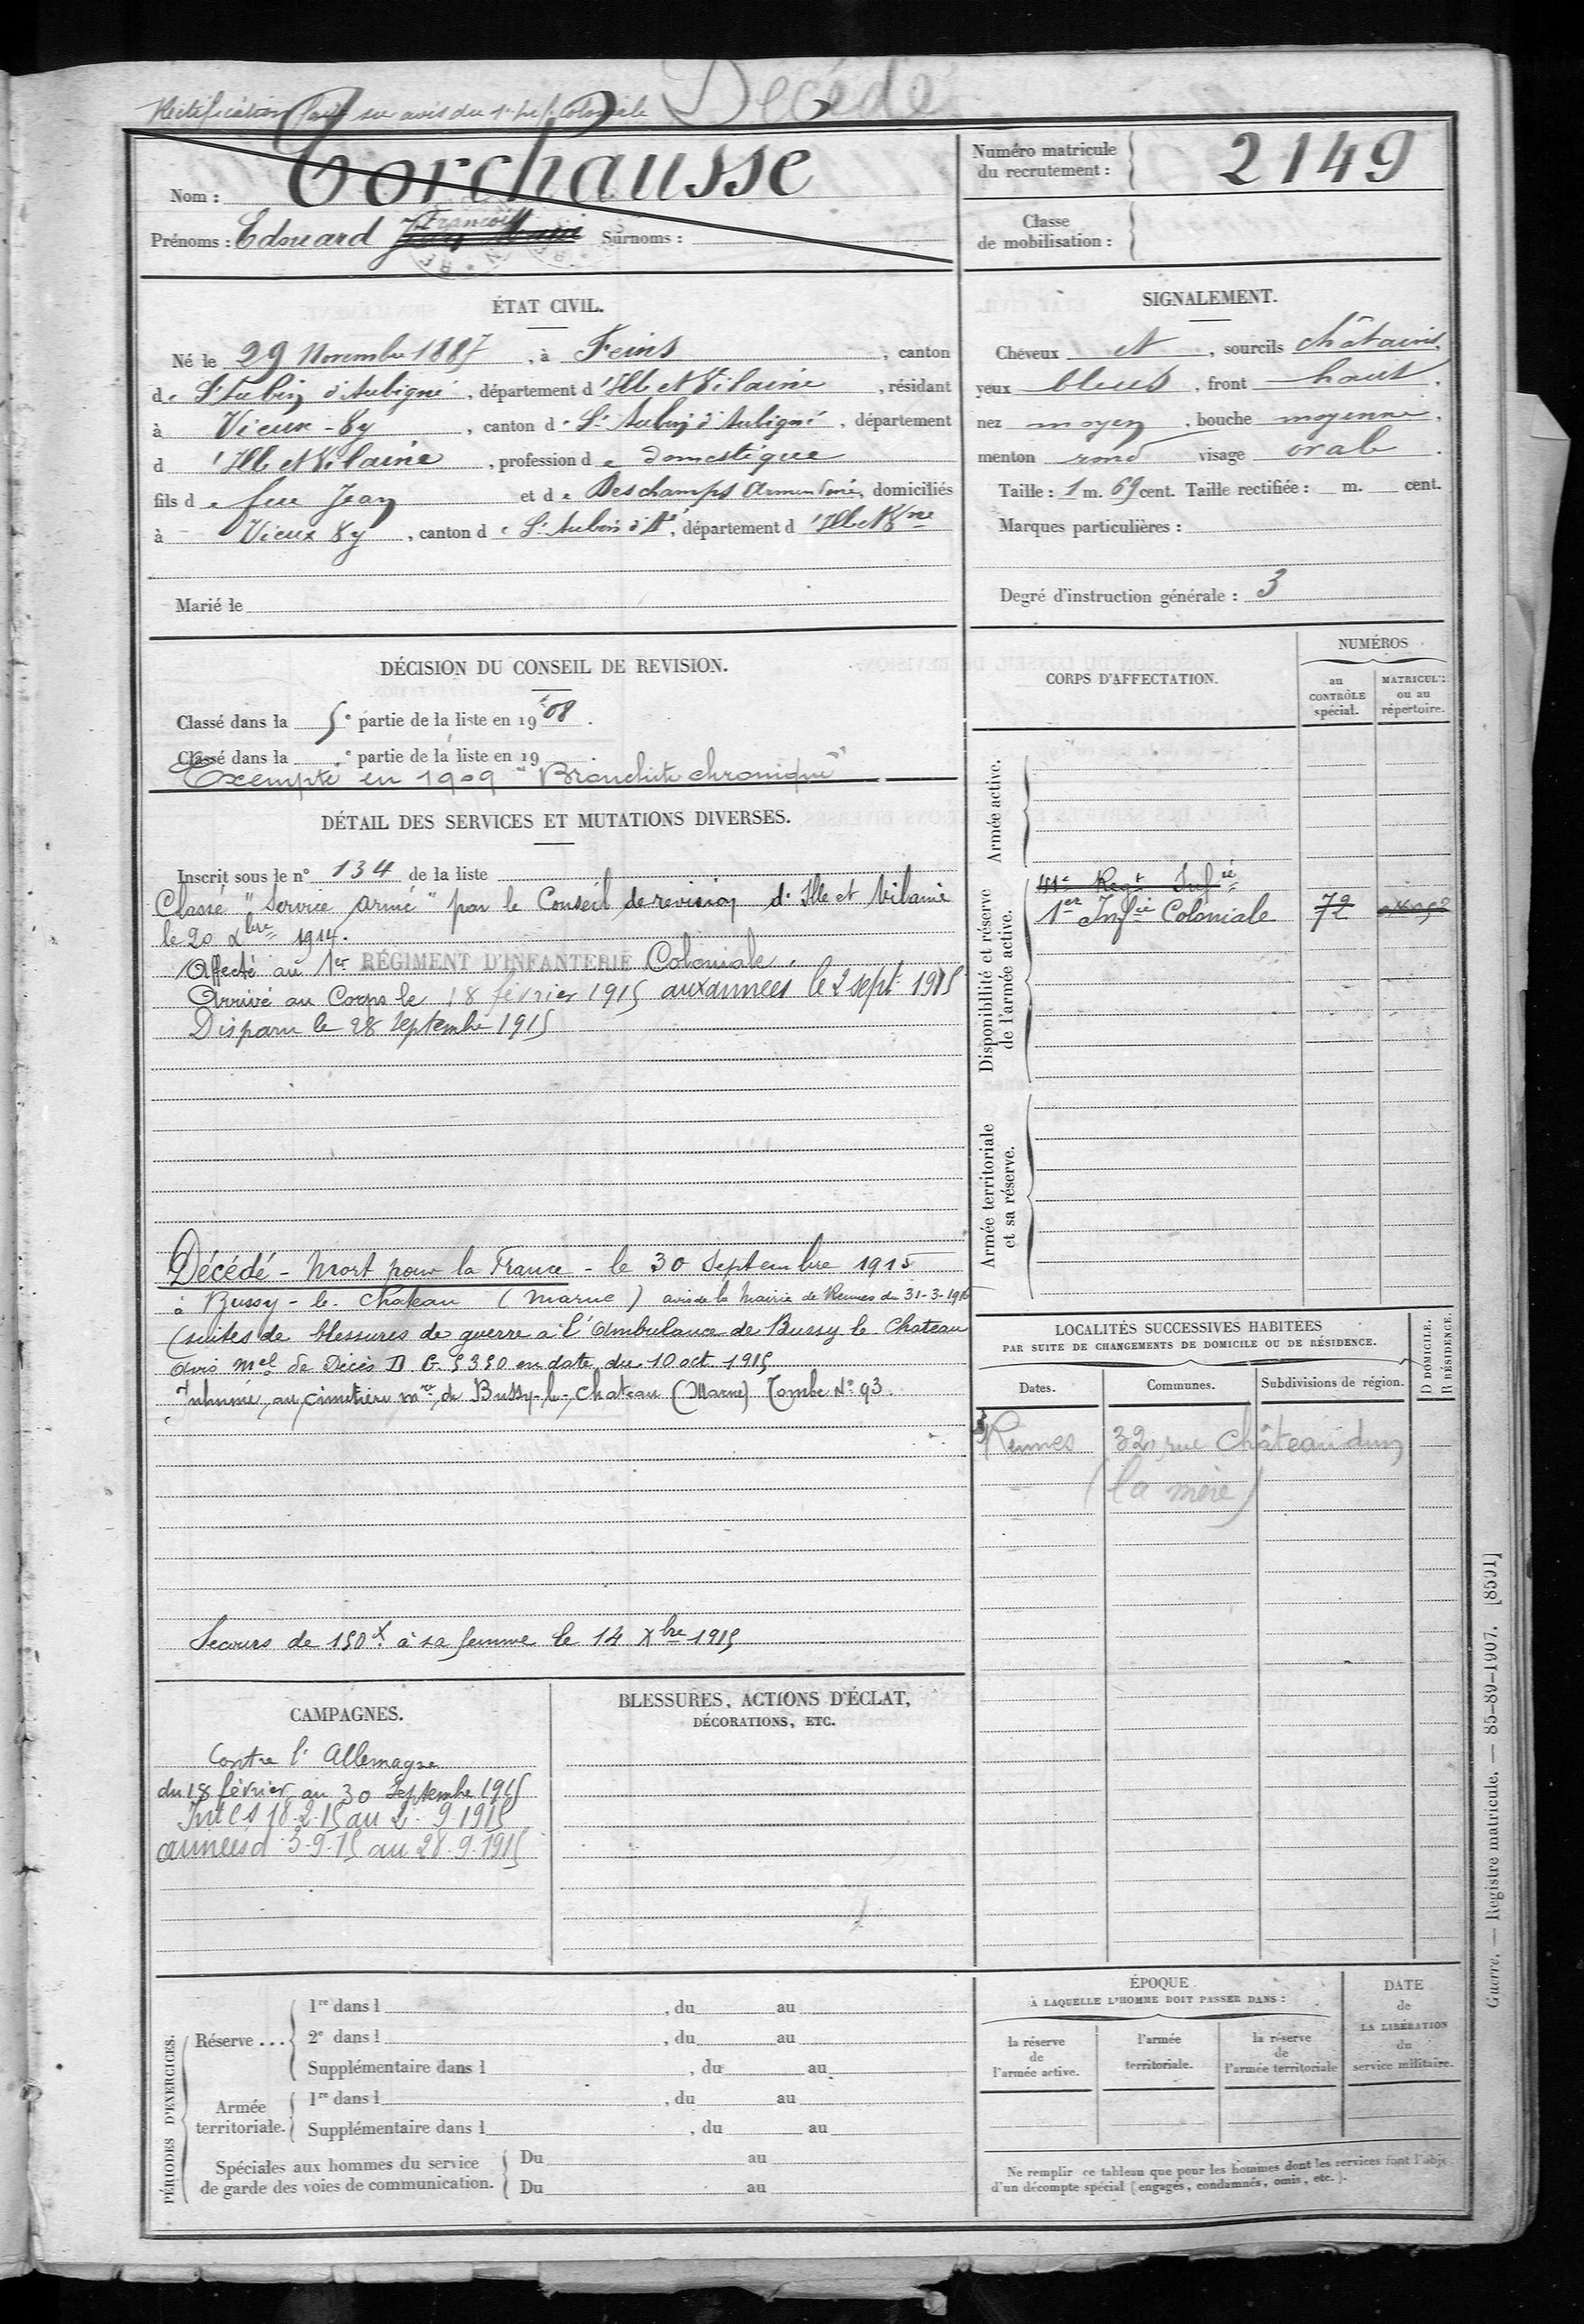 Rectification faite sur avis du 1er Inf. Coloniale Décédé
Nom : Torchausse
Prénoms : Edouard François Jean Marie Surnoms :
Numéro matricule du recrutement : 2149
Classe de mobilisation :
ÉTAT CIVIL.
Né le 29 Novembre 1887, à Feins, canton
de St Aubin d'Aubigné, département d'Ille et Vilaine, résidant
à Vieux-Vy, canton de St Aubin d'Aubigné, département
d'Ille et Vilaine, profession de domestique
fils de feu Jean et de Deschamps Armandine, domiciliés
à Vieux Vy, canton de St Aubin d'Aé, département d'Ille et Vne
Marié le
SIGNALEMENT.
Cheveux et, sourcils châtains,
yeux bleus, front haut,
nez moyen, bouche moyenne,
menton rond visage ovale.
Taille : 1 m. 69 cent. Taille rectifiée : m. cent.
Marques particulières :
Degré d'instruction générale : 3
DÉCISION DU CONSEIL DE REVISION.
Classé dans la 5e partie de la liste en 1908.
Classé dans la e partie de la liste en 19
Exempté en 1909 "Bronchite chronique"
DÉTAIL DES SERVICES ET MUTATIONS DIVERSES.
Inscrit sous le n° 134 de la liste
Classé "Service armé" par le Conseil de revision d'Ille et Vilaine
le 20 Xbre 1914.
Affecté au 1er RÉGIMENT D'INFANTERIE Coloniale.
Arrivé au Corps le 18 février 1915 aux armées le 2 sept 1915
Disparu le 28 Septembre 1915
Décédé - Mort pour la France - le 30 Septembre 1915
à Bussy-le-Chateau (Marne) avis de la Mairie de Rennes du 31-3-1916
(suites de blessures de guerre à l'Ambulance de Bussy le Chateau
Avis mel de Décès D C. 5350 en date du 10 oct 1915
Inhumé au cimetière mre de Bussy-le-Chateau (Marne) Tombe No 93.
Secours de 150f à sa femme le 14 Xbre 1915
CORPS D'AFFECTATION.
NUMÉROS
au CONTRÔLE spécial.
MATRICULE ou au répertoire.
Armée active.
Disponibilité et réserve de l'armée active.
41e Regt Infie
1er Infie Coloniale 72
Armée territoriale et sa réserve.
LOCALITÉS SUCCESSIVES HABITÉES
PAR SUITE DE CHANGEMENTS DE DOMICILE OU DE RÉSIDENCE.
Dates. Communes. Subdivisions de région. D DOMICILE. R RÉSIDENCE.
Rennes 32, rue Châteaudun
(la mère)
CAMPAGNES.
Contre l'Allemagne
du 18 février au 30 Septembre 1915
Int C S 18.2.15 au 2.9.1915
armées d 3.9.15 au 28.9.1915
BLESSURES, ACTIONS D'ÉCLAT,
DÉCORATIONS, ETC.
PÉRIODES D'EXERCICES.
Réserve ...
1re dans l , du au
2e dans l , du au
Supplémentaire dans l , du au
Armée territoriale.
1re dans l , du au
Supplémentaire dans l , du au
Spéciales aux hommes du service
de garde des voies de communication.
Du au
Du au
ÉPOQUE
À LAQUELLE L'HOMME DOIT PASSER DANS :
la réserve de l'armée active.
l'armée territoriale.
la réserve de l'armée territoriale
DATE de LA LIBÉRATION du service militaire.
Ne remplir ce tableau que pour les hommes dont les services font l'obje
d'un décompte spécial (engagés, condamnés, omis, etc.).
Guerre. — Registre matricule. — 85-89-1907. [8501]